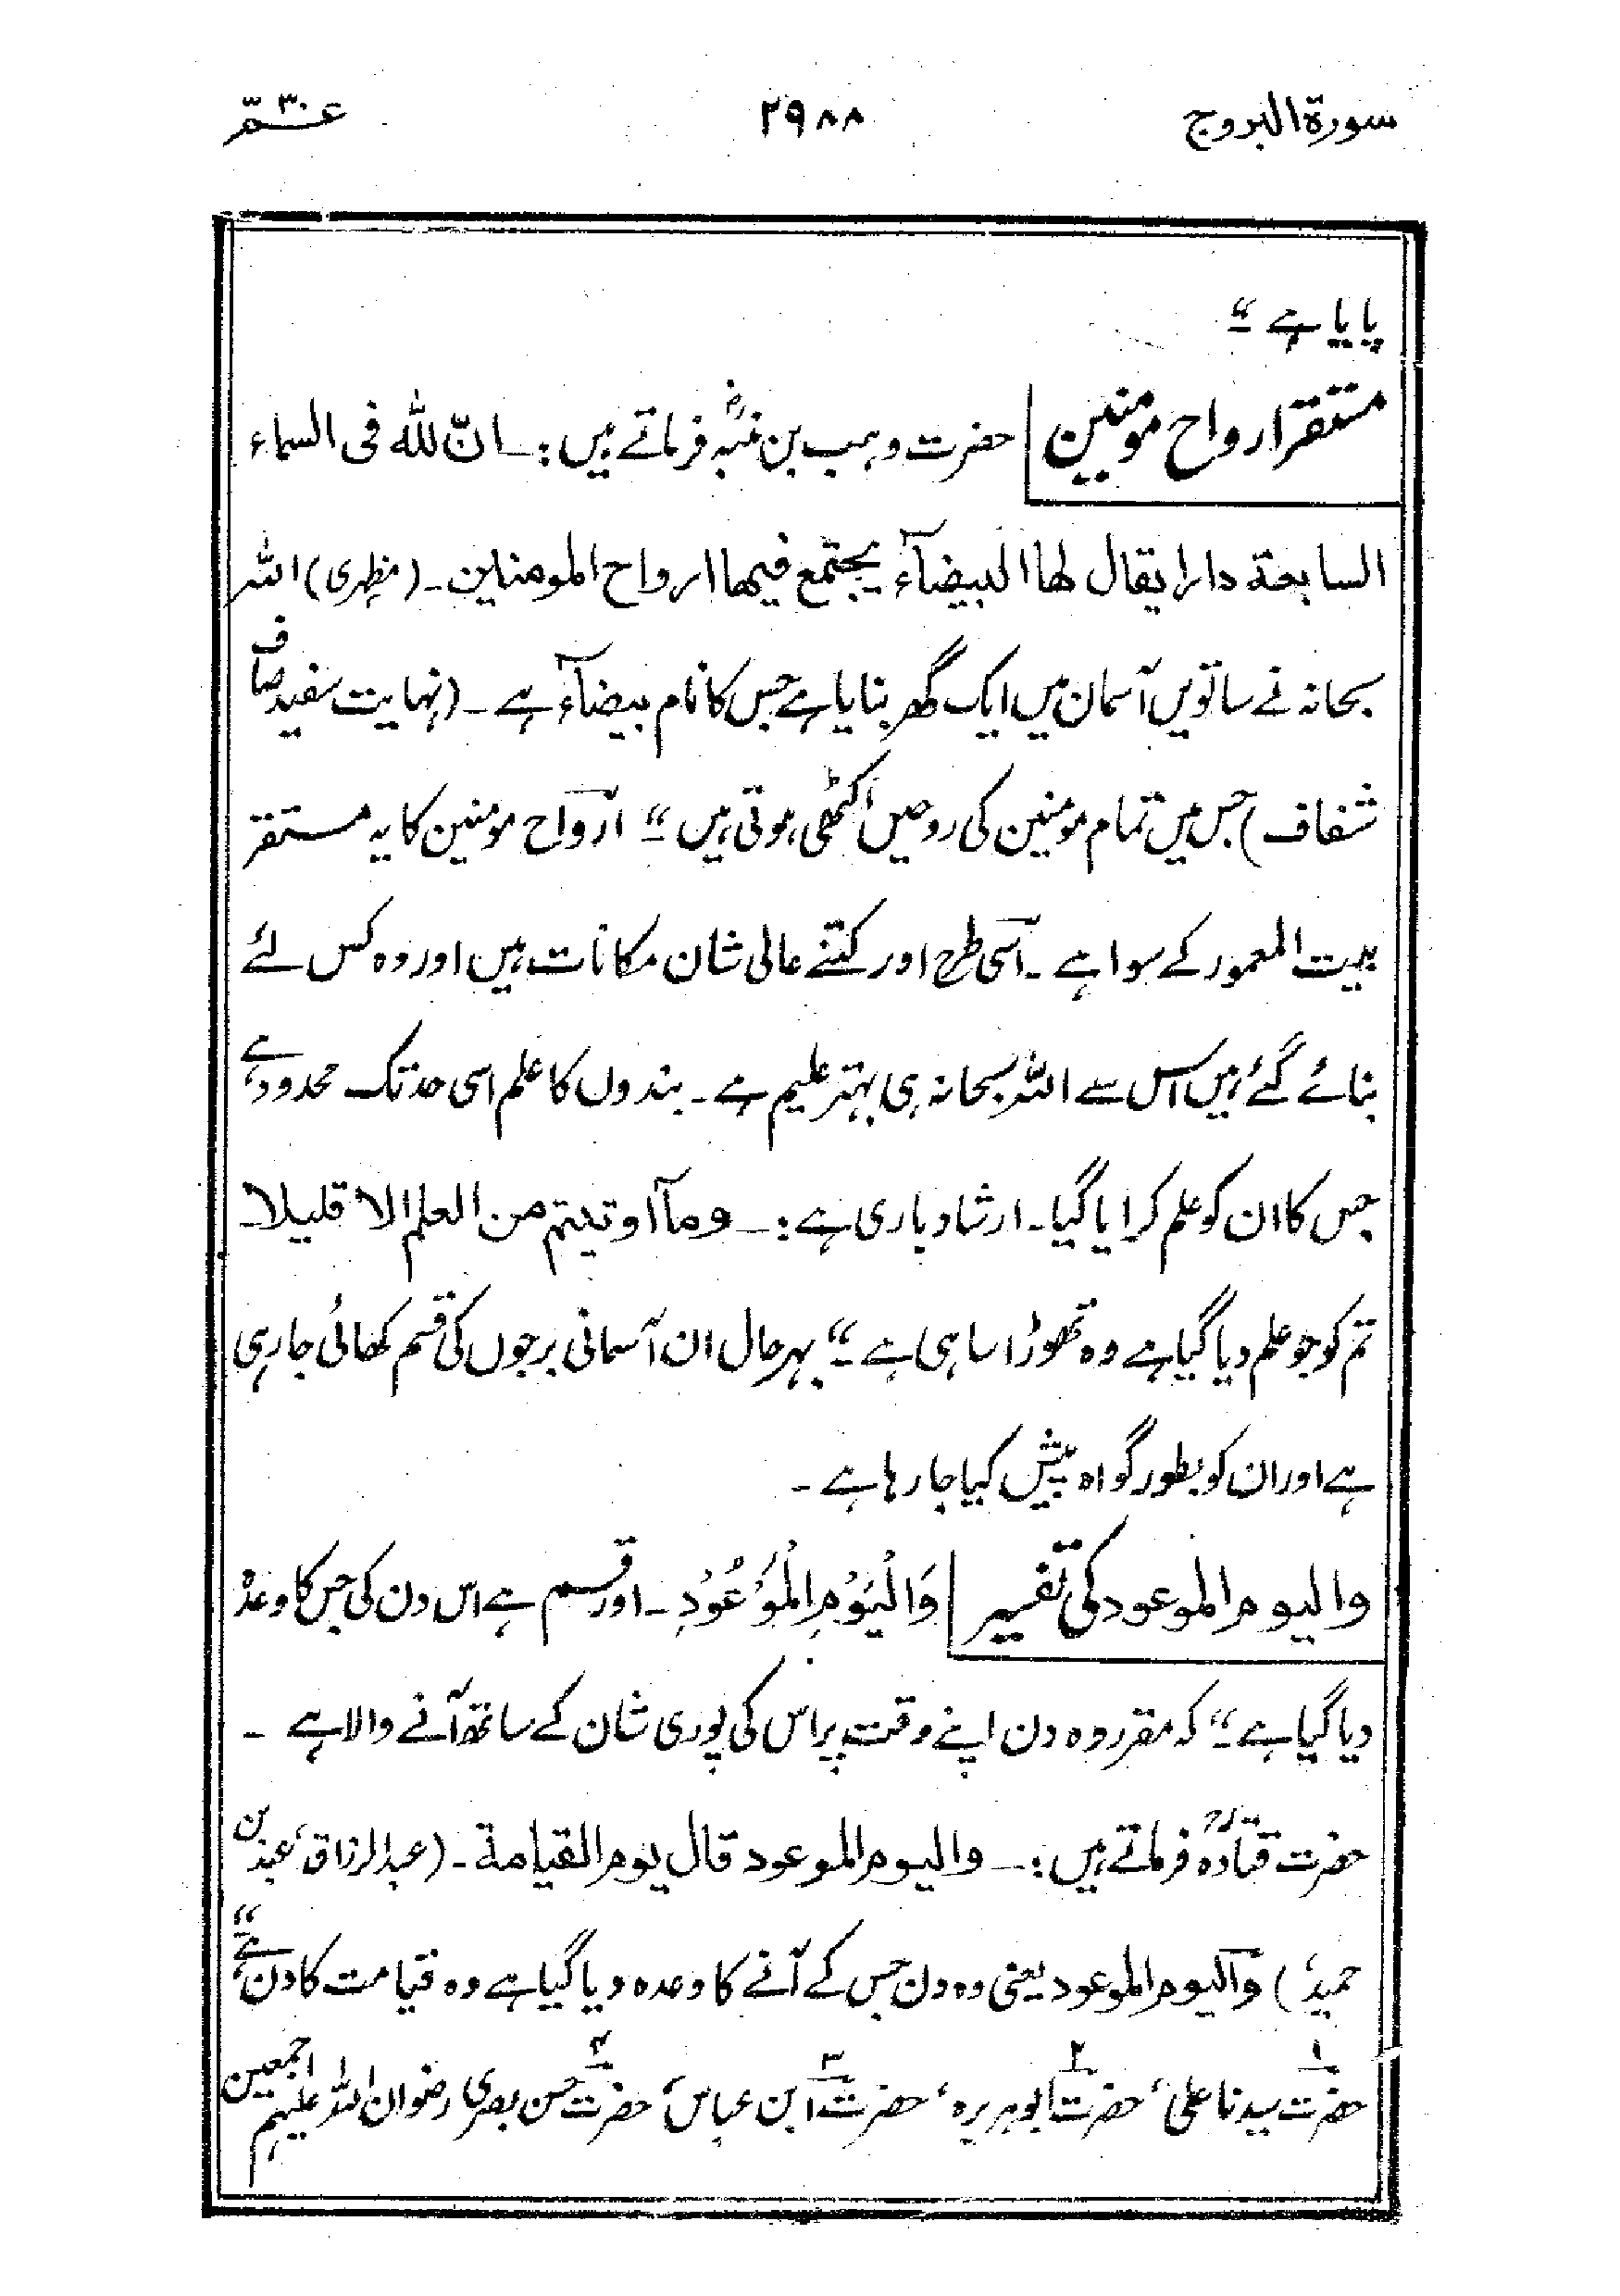 سورۃ البروج ۲۹۸۸ عمّ ۳۰
پایا ہے ‘‘۔
مستقر ارواح مومنین حضرت وہب بن منبّہؒ فرماتے ہیں :۔ انّ للّٰہ فی السماء
السابعة دارا یقال لھا البیضآء یجتمع فیھا ارواح المومنین ۔ (مظہری) اللہ
سبحانہ نے ساتویں آسمان میں ایک گھر بنایا ہے جس کا نام بیضآء ہے ۔ (نہایت سفید صاف
شفاف) جس میں تمام مومنین کی روحیں اکٹھی ہوتی ہیں ‘‘۔ ارواح مومنین کا یہ مستقر
بیت المعمور کے سوا ہے ۔ اسی طرح اور کتنے عالی شان مکانات ہیں اور وہ کس لئے
بنائے گئے ہیں اس سے اللہ سبحانہ ہی بہتر علیم ہے ۔ بندوں کا علم اسی حد تک محدود ہے
جس کا ان کو علم کرایا گیا ۔ ارشاد باری ہے :۔ ومآ اوتیتم من العلم الا قلیلا ۔
تم کو جو علم دیا گیا ہے وہ تھوڑا سا ہی ہے ‘‘۔ بہرحال ان آسمانی برجوں کی قسم کھائی جارہی
ہے اور ان کو بطور گواہ پیش کیا جا رہا ہے ۔
والیوم الموعود کی تفسیر وَالْیَوْمِ الْمَوْعُوْدِ ۔ اور قسم ہے اس دن کی جس کا وعدہ
دیا گیا ہے ‘‘۔ کہ مقررہ وہ دن اپنے وقت پر اس کی پوری شان کے ساتھ آنے والا ہے ۔
حضرت قتادہؒ فرماتے ہیں :۔ والیوم الموعود قال یوم القیامة ۔ (عبدالرزاق، عبد بن
حمید) والیوم الموعود یعنی وہ دن جس کے آنے کا وعدہ دیا گیا ہے وہ قیامت کا دن ہے ‘‘۔
۱ حضرت سیدنا علی، ۲ حضرت ابوہریرہ، ۳ حضرت ابن عباس، ۴ حضرت حسن بصری رضوان اللہ علیہم اجمعین